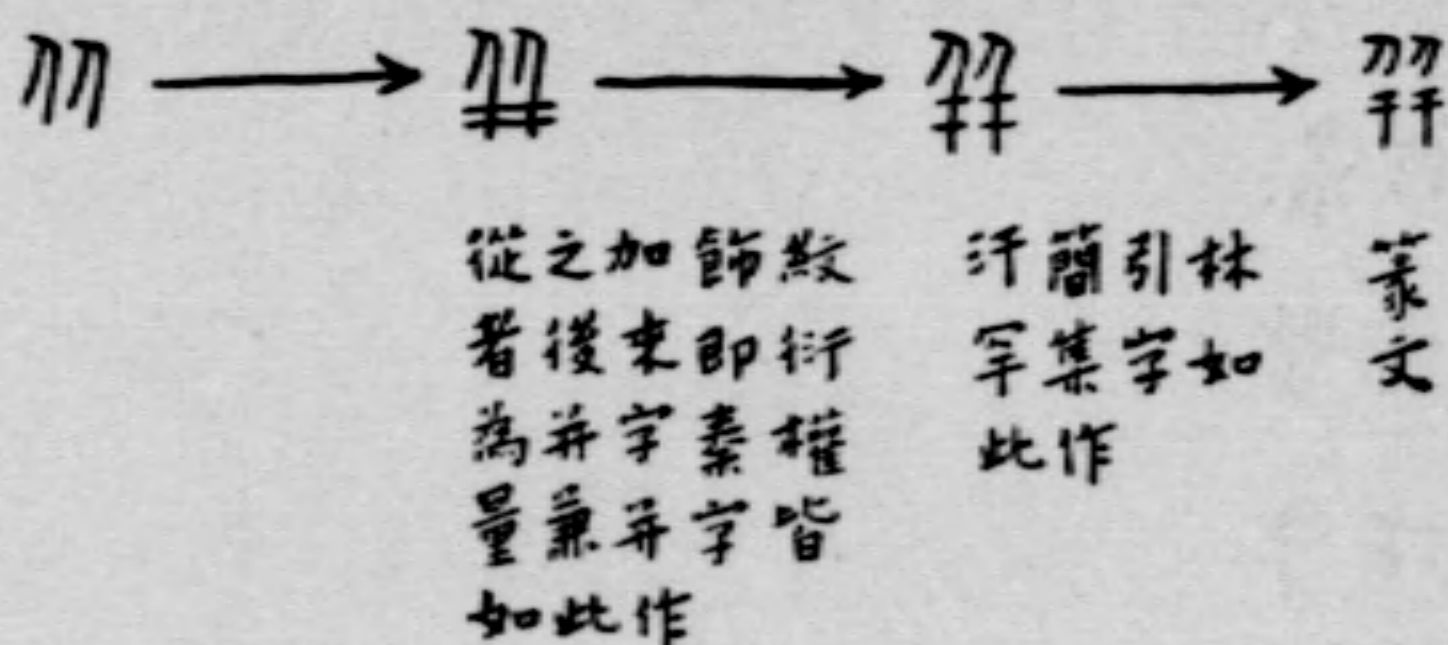 从 → 幷 → 幵 → 幵
從之加飾紋
者後來即衍
為并字秦權
量兼并字皆
如此作
汗簡引林
罕集字如
此作
篆
文